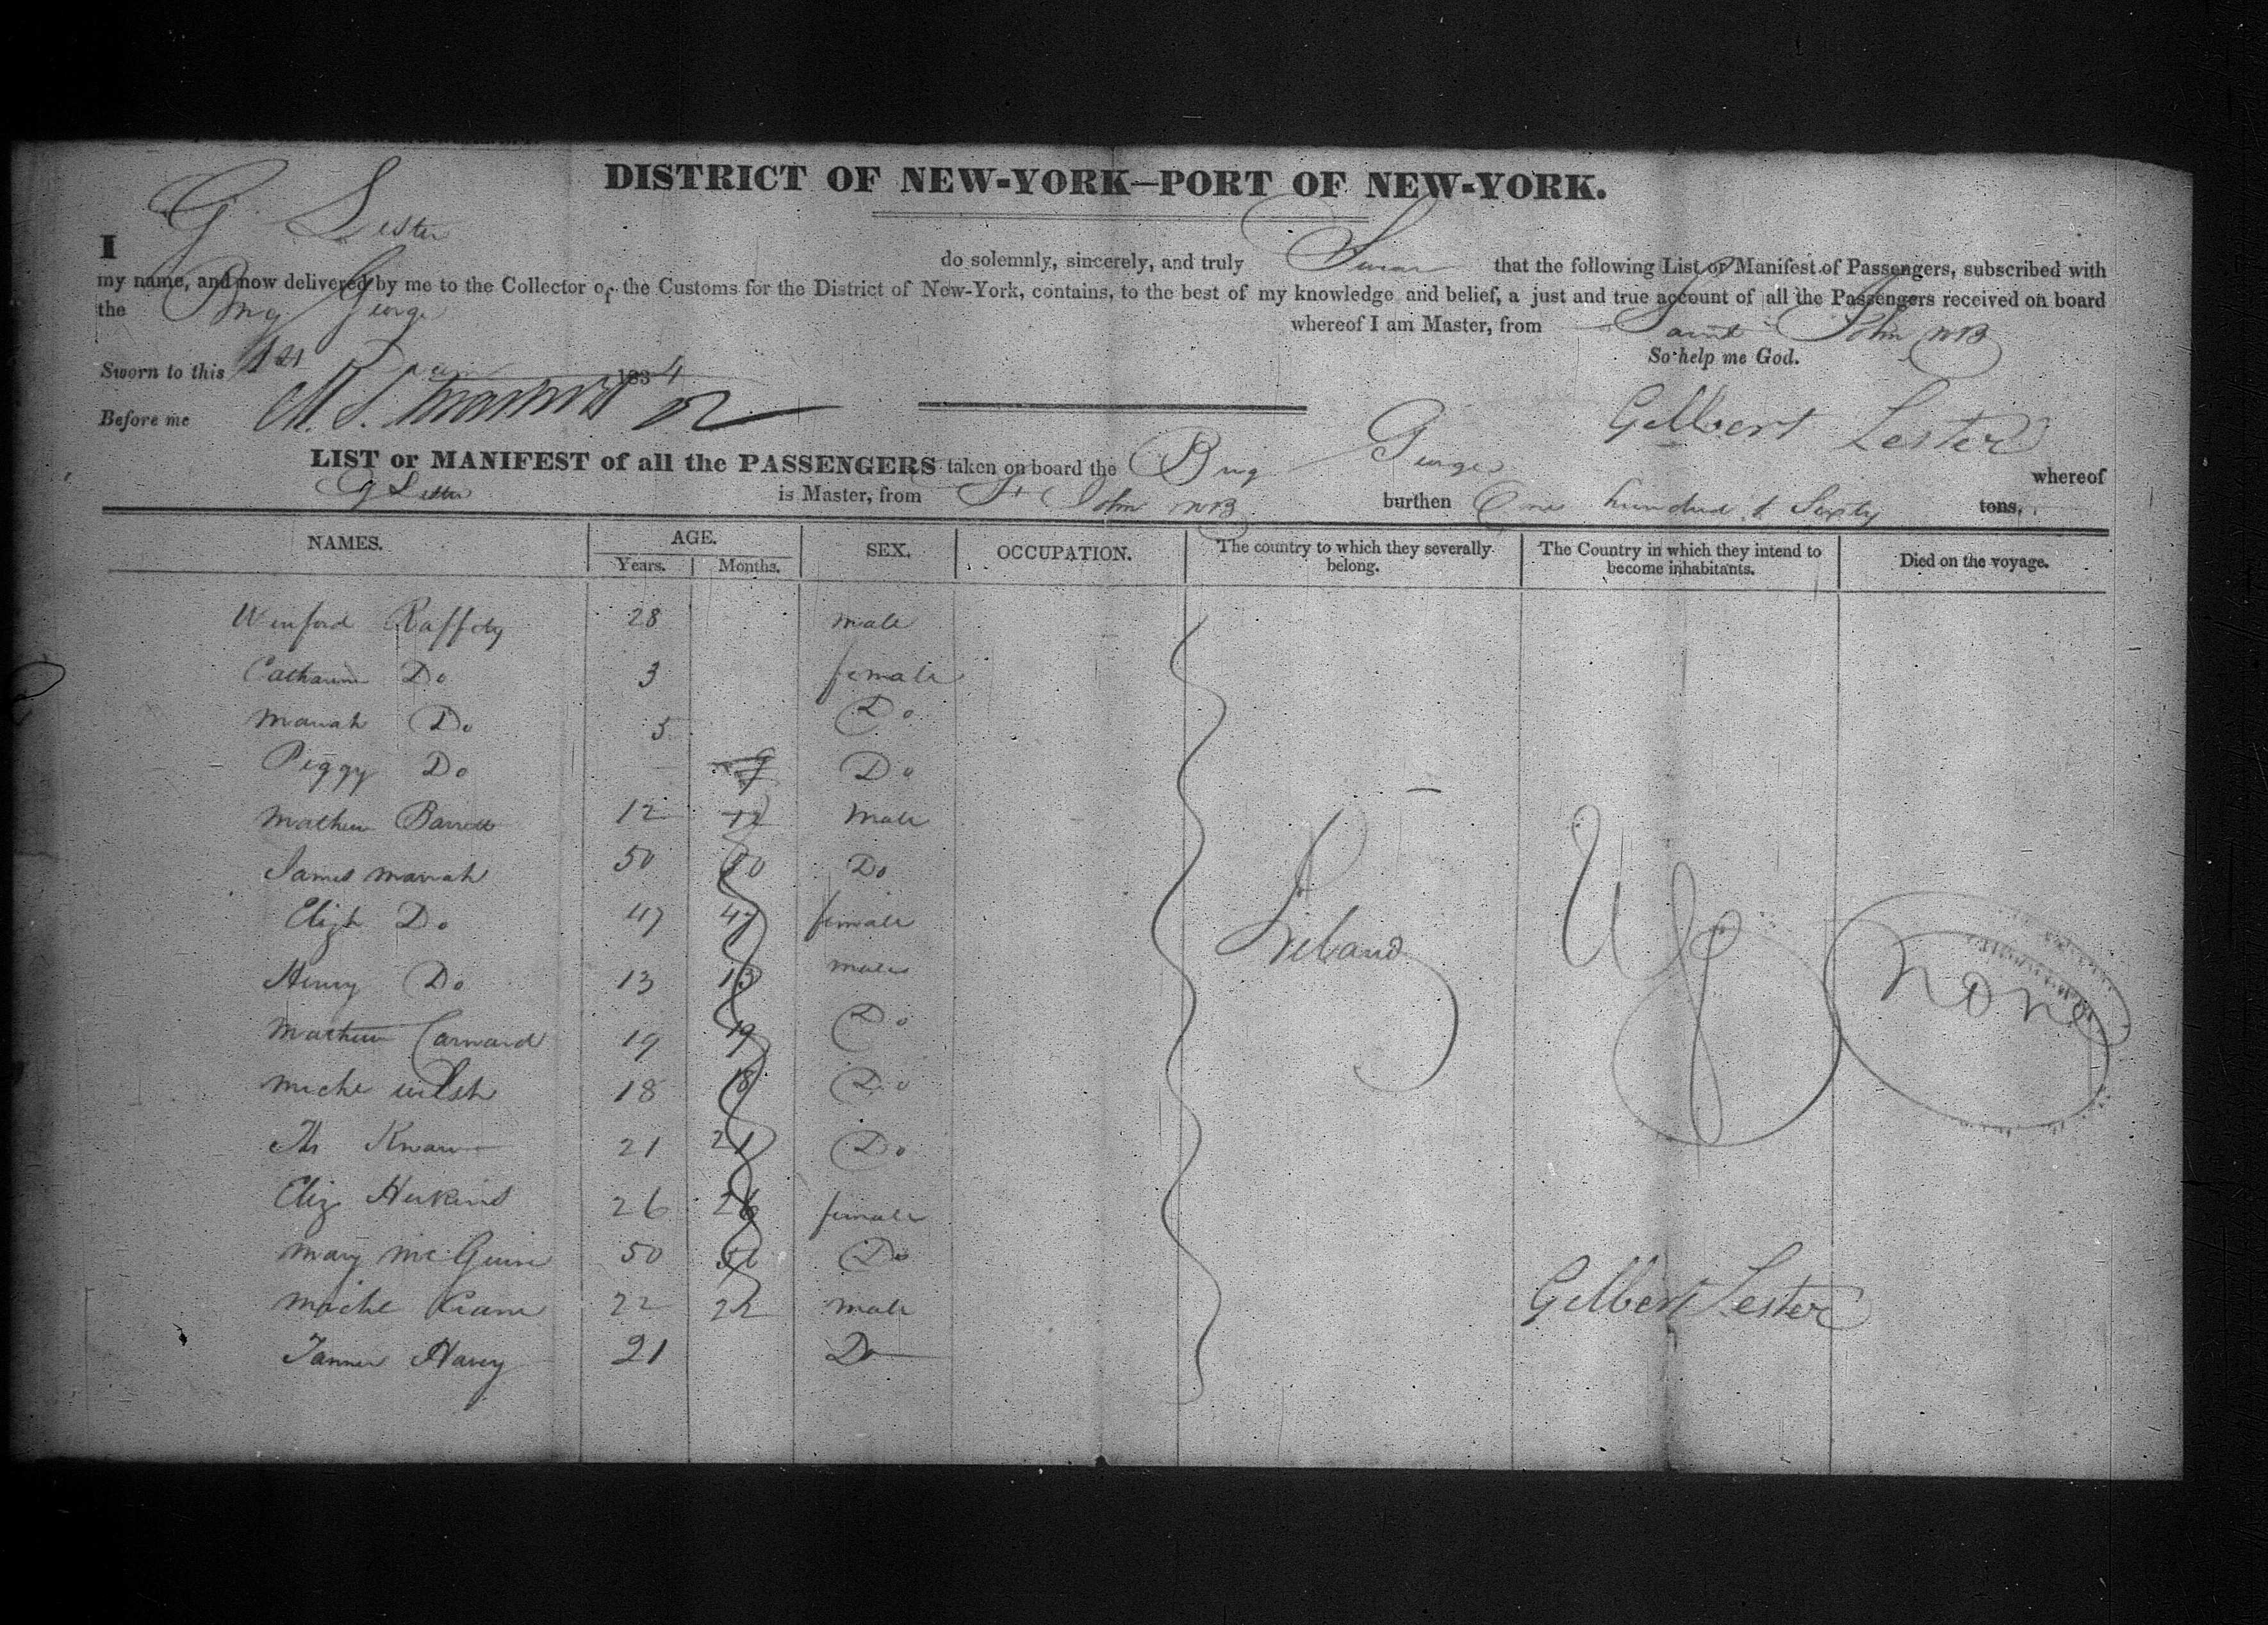 DISTRICT OF NEW-YORK—PORT OF NEW-YORK.
I G Lester do solemnly, sincerely, and truly Swear that the following List or Manifest of Passengers, subscribed with
my name, and now delivered by me to the Collector of the Customs for the District of New-York, contains, to the best of my knowledge and belief, a just and true account of all the Passengers received on board
the Brig George whereof I am Master, from Saint John NB
So help me God.
Sworn to this 1st 1834
Before me Gilbert Lester
LIST or MANIFEST of all the PASSENGERS taken on board the Brig George whereof
G Lester is Master, from St John NB burthen One hundred & Sixty tons.
NAMES. AGE. SEX. OCCUPATION. The country to which they severally belong. The Country in which they intend to become inhabitants. Died on the voyage.
Years. Months.
Winford Rafferty 28 male
Catharine Do 3 female
Mariah Do 5 Do
Peggy Do 9 Do
Mathew Barrett 12 12 Male
James Marrah 50 50 Do
Elizh Do 47 47 female
Henry Do 13 13 male
Mathew Carnard 19 19 Do
Miche Welsh 18 18 Do
Ths 21 21 Do
Eliz Herkins 26 26 female
Mary McGuire 50 50 Do
Miche 22 22 male
Tanner Harvy 21 Do
Ireland
US
None
Gilbert Lester